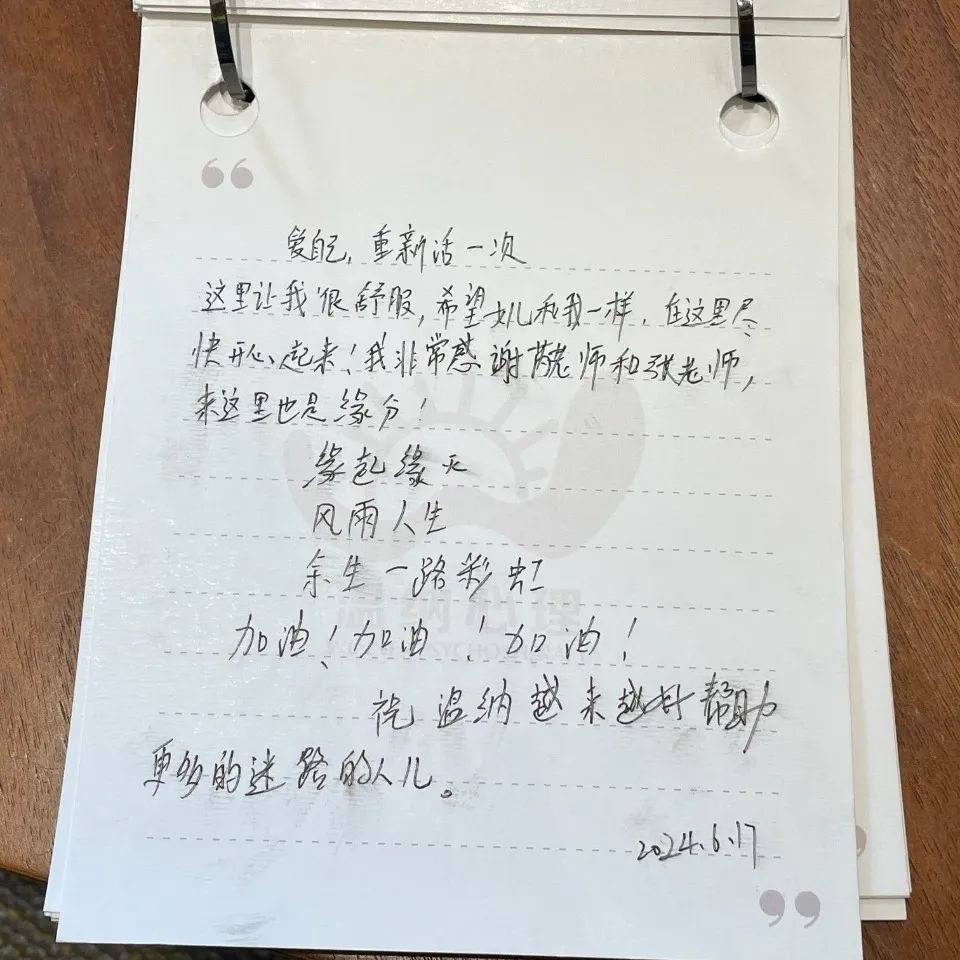 爱自己，重新活一次
这里让我很舒服，希望女儿和我一样，在这里尽
快开心起来！我非常感谢龚老师和张老师，
来这里也是缘分！
缘起缘灭
风雨人生
余生一路彩虹
温纳心理
加油！加油！加油！
祝温纳越来越好帮助
更多的迷路的人儿。
2024.6.17